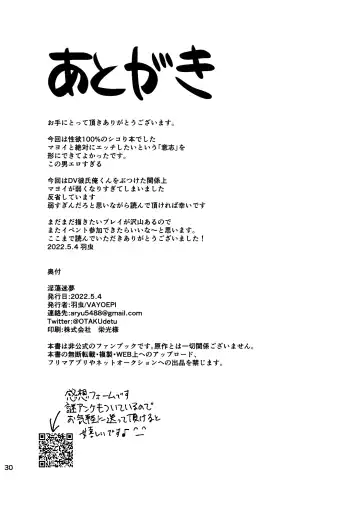 あとがき
お手にとって頂きありがとうございます。
今回は性欲100%のシコり本でした
マヨイと絶対にエッチしたいという「意志」を
形にできてよかったです。
この男エロすぎる
今回はDV彼氏俺くんをぶつけた関係上
マヨイが弱くなりすぎてしまいました
反省しています
弱すぎんだろと思いながら読んで頂ければ幸いです
まだまだ描きたいプレイが沢山あるので
またイベント参加できたらいいな～と思います。
ここまで読んでいただきありがとうございました！
2022.5.4 羽虫
奥付
淫蕩迷夢
発行日:2022.5.4
発行者:羽虫/VAYOEPI
連絡先:aryu5488@gmail.com
Twitter:@OTAKUdetu
印刷:株式会社 栄光様
本書は非公式のファンブックです。原作とは一切関係ございません。
本書の無断転載・複製・WEB上へのアップロード、
フリマアプリやネットオークションへの出品を禁じます。
感想フォームです
謎アンケもついているので
お気軽に送って頂けると
嬉しいです♪^^
30